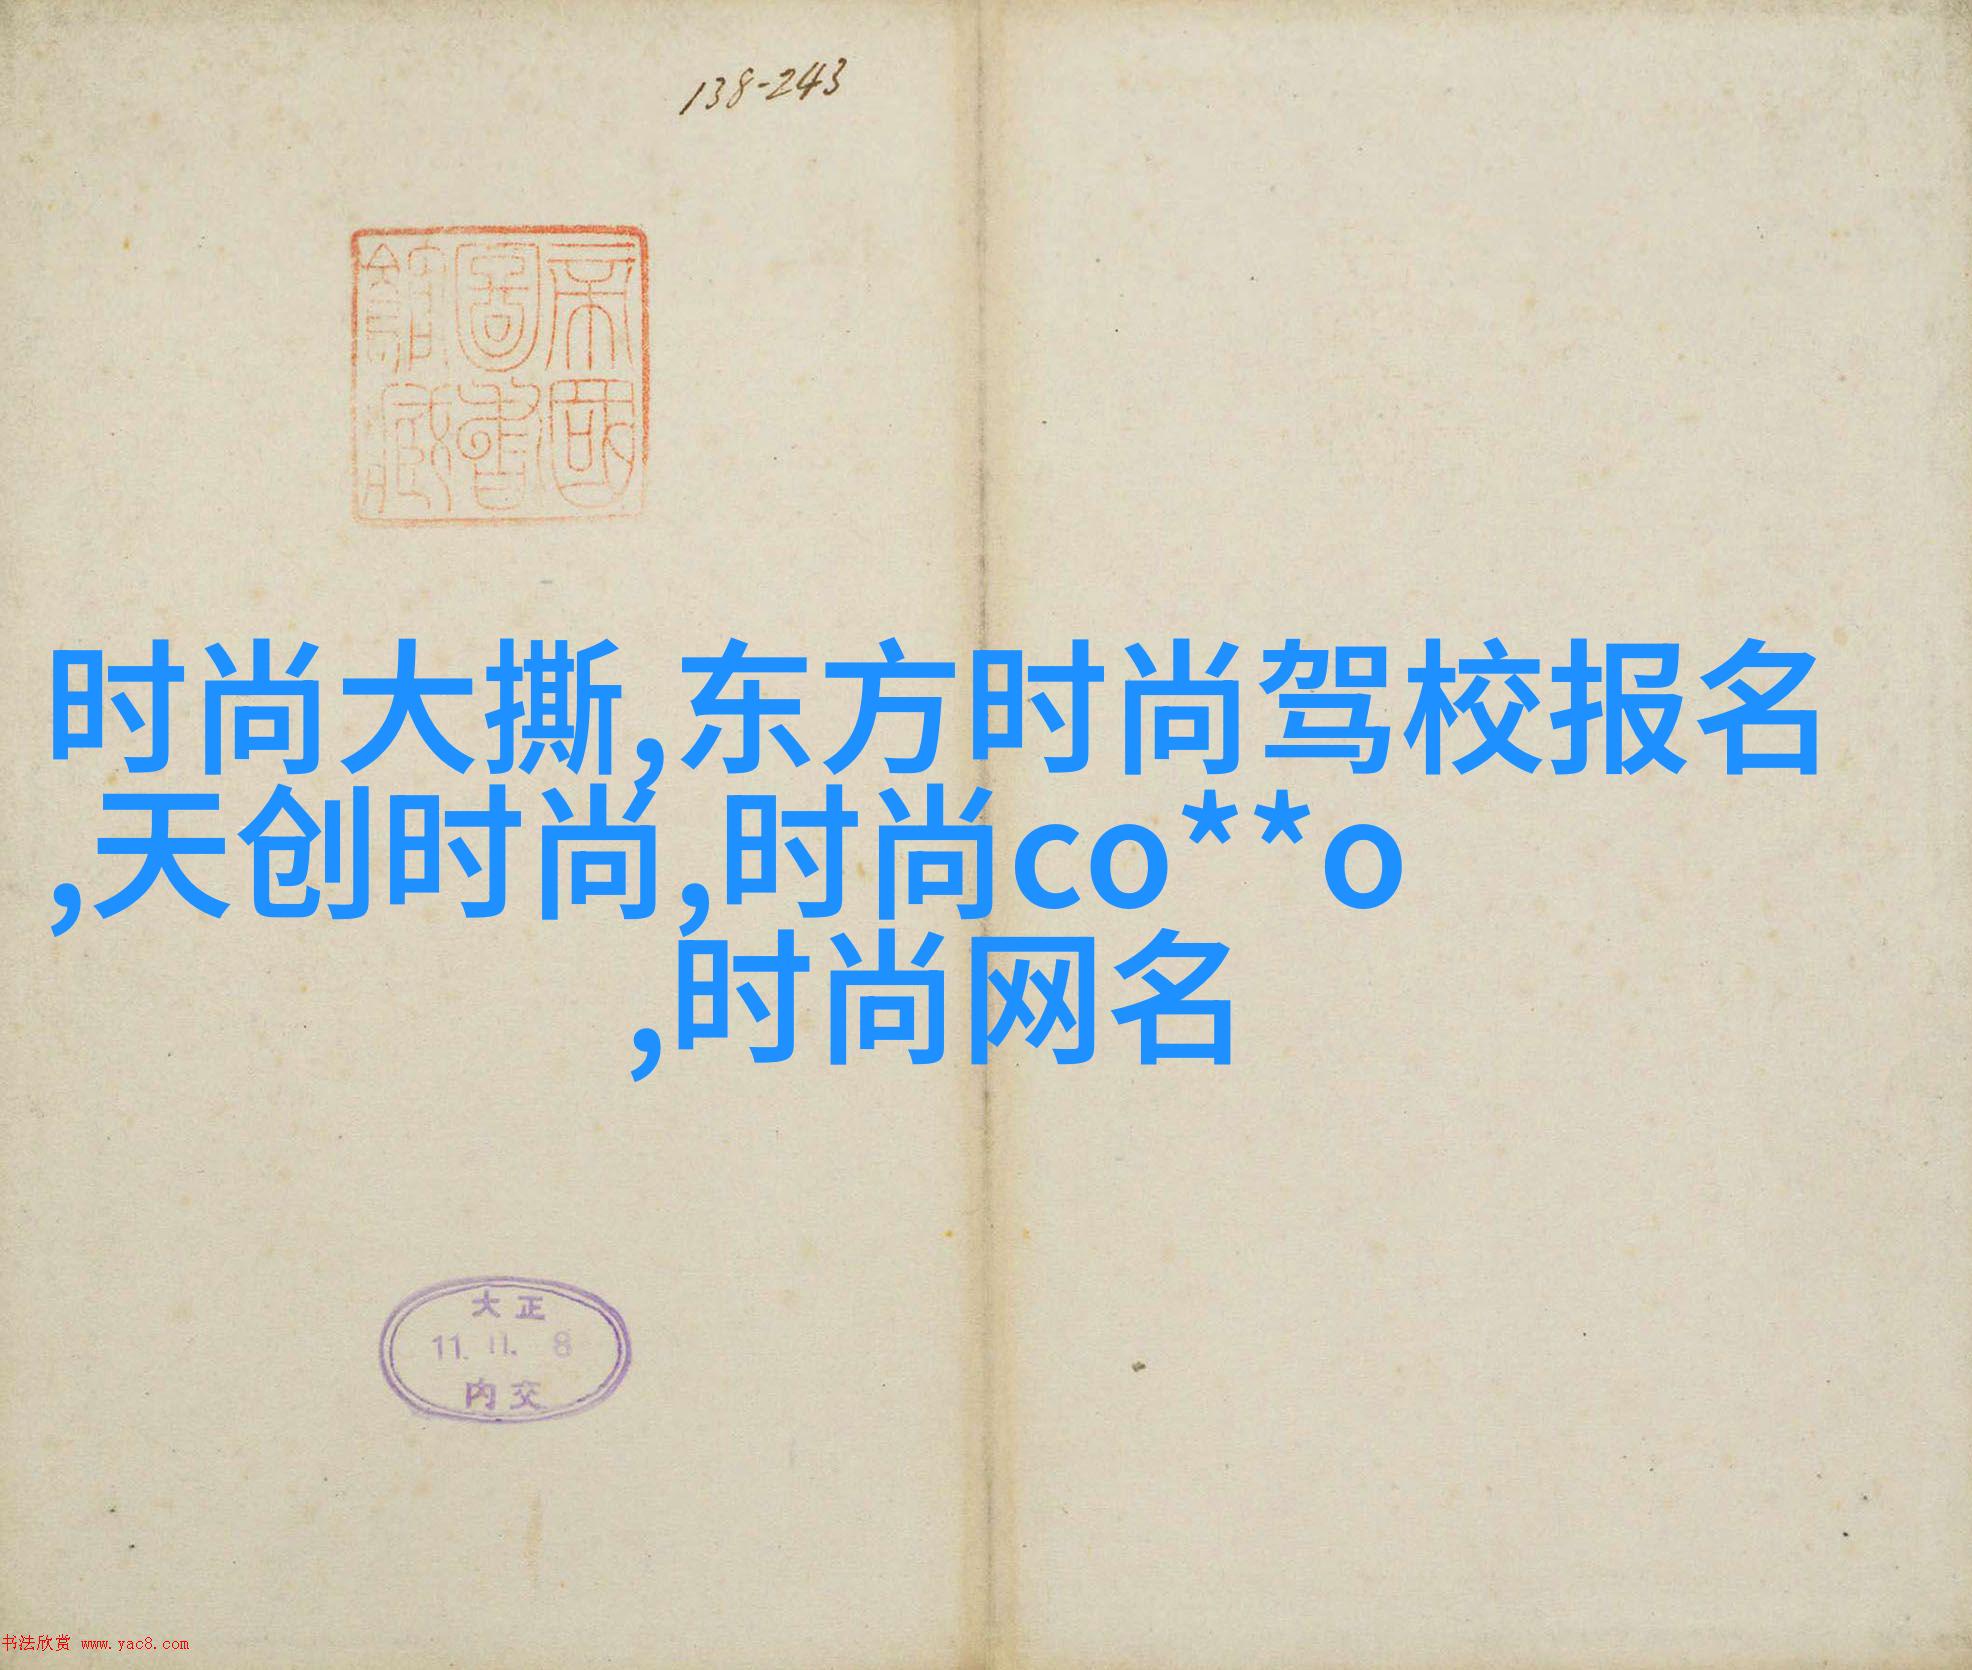 138-243
帝國
圖書
館藏
时尚大撕,东方时尚驾校报名
,天创时尚,时尚co**o
,时尚网名
大正
11. 11. 8
内交
书法欣赏 www.yac8.com